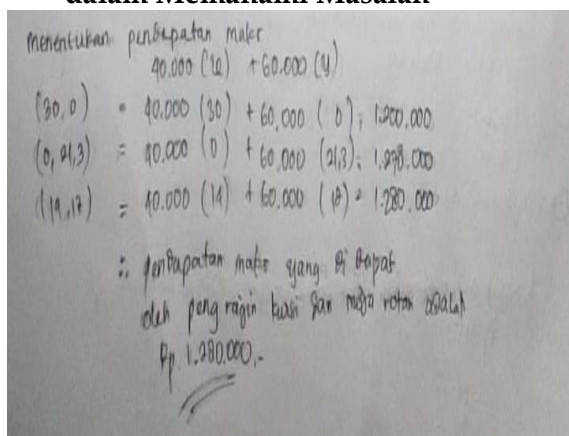 dalam Memahami Masalah
Menentukan pendapatan maks
40.000 (x) + 60.000 (y)
(30,0) = 40.000 (30) + 60,000 ( 0 ) ; 1.200,000
(0, 21,3) = 40.000 (0) + 60,000 (21,3) ; 1.278.000
(14,12) = 40.000 (14) + 60.000 (12) = 1.280.000
∴ pendapatan maks yang di dapat
oleh pengrajin kursi dan meja rotan adalah
Rp. 1.280.000,-